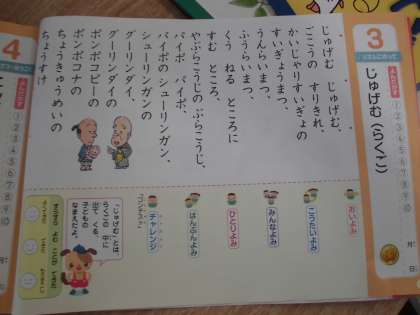 3
じゅげむ（らくご）
じゅげむ じゅげむ、
ごこうの すりきれ、
かいじゃりすいぎょの
すいぎょうまつ、
うんらいまつ、
ふうらいまつ、
くう ねる ところに
すむ ところ、
やぶらこうじのぶらこうじ、
パイポ パイポ、
パイポのシューリンガン、
シューリンガンの
グーリンダイ、
グーリンダイの
ポンポコピーの
ポンポコナの
ちょうきゅうめいの
ちょうすけ
おいよみ
こうたいよみ
みんなよみ
ひとりよみ
はんぶんよみ
チャレンジ
「じゅげむ」とは、
らくごの 中に
出て くる、
子どもの
なまえだよ。
4
月
日
①
②
③
④
⑤
⑥
⑦
⑧
⑨
⑩